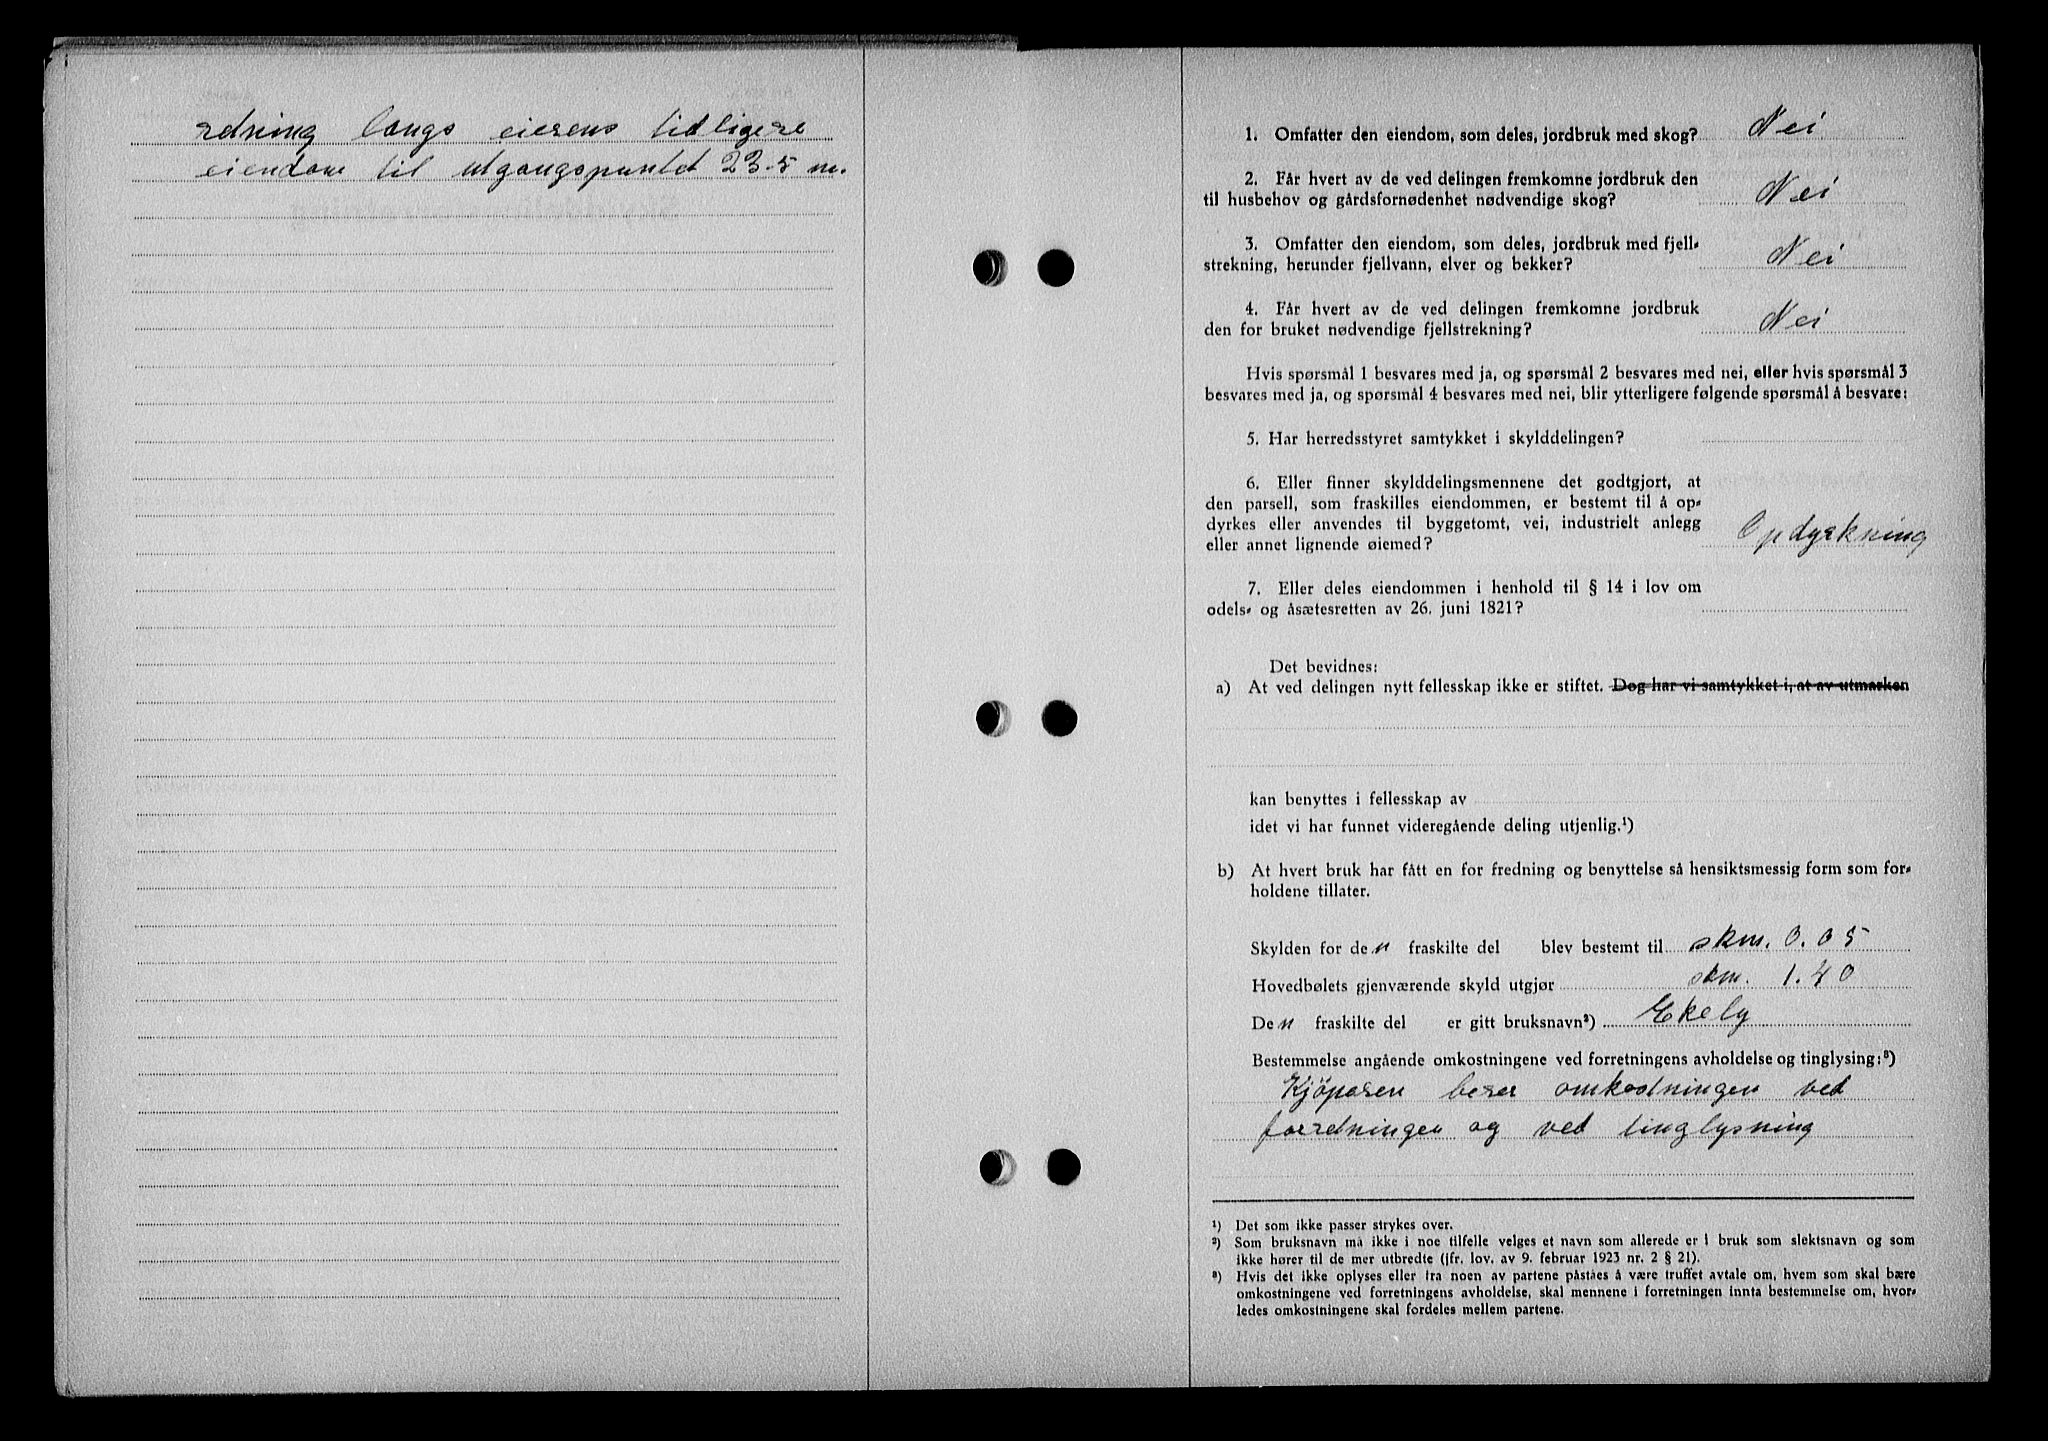 retning langs eierens tidligere
eiendom til utgangspunktet 23.5 m.
1. Omfatter den eiendom, som deles, jordbruk med skog? Nei
2. Får hvert av de ved delingen fremkomne jordbruk den
til husbehov og gårdsfornødenhet nødvendige skog? Nei
3. Omfatter den eiendom, som deles, jordbruk med fjell-
strekning, herunder fjellvann, elver og bekker? Nei
4. Får hvert av de ved delingen fremkomne jordbruk
den for bruket nødvendige fjellstrekning? Nei
Hvis spørsmål 1 besvares med ja, og spørsmål 2 besvares med nei, eller hvis spørsmål 3
besvares med ja, og spørsmål 4 besvares med nei, blir ytterligere følgende spørsmål å besvare:
5. Har herredsstyret samtykket i skylddelingen?
6. Eller finner skylddelingsmennene det godtgjort, at
den parsell, som fraskilles eiendommen, er bestemt til å op-
dyrkes eller anvendes til byggetomt, vei, industrielt anlegg
eller annet lignende øiemed? Opdyrkning
7. Eller deles eiendommen i henhold til § 14 i lov om
odels- og åsætesretten av 26. juni 1821?
Det bevidnes:
a) At ved delingen nytt fellesskap ikke er stiftet. Dog har vi samtykket i, at av utmarken
kan benyttes i fellesskap av
idet vi har funnet videregående deling utjenlig.¹)
b) At hvert bruk har fått en for fredning og benyttelse så hensiktsmessig form som for-
holdene tillater.
Skylden for den fraskilte del blev bestemt til skm. 0.05
Hovedbølets gjenværende skyld utgjør skm. 1.40
Den fraskilte del er gitt bruksnavn²) Ekely
Bestemmelse angående omkostningene ved forretningens avholdelse og tinglysing:³)
Kjöperen berer omkostningen ved
forretningen og ved tinglysning
¹) Det som ikke passer strykes over.
²) Som bruksnavn må ikke i noe tilfelle velges et navn som allerede er i bruk som slektsnavn og som
ikke hører til de mer utbredte (jfr. lov. av 9. februar 1923 nr. 2 § 21).
³) Hvis det ikke oplyses eller fra noen av partene påståes å være truffet avtale om, hvem som skal bære
omkostningene ved forretningens avholdelse, skal mennene i forretningen innta bestemmelse om, hvor-
ledes omkostningene skal fordeles mellem partene.